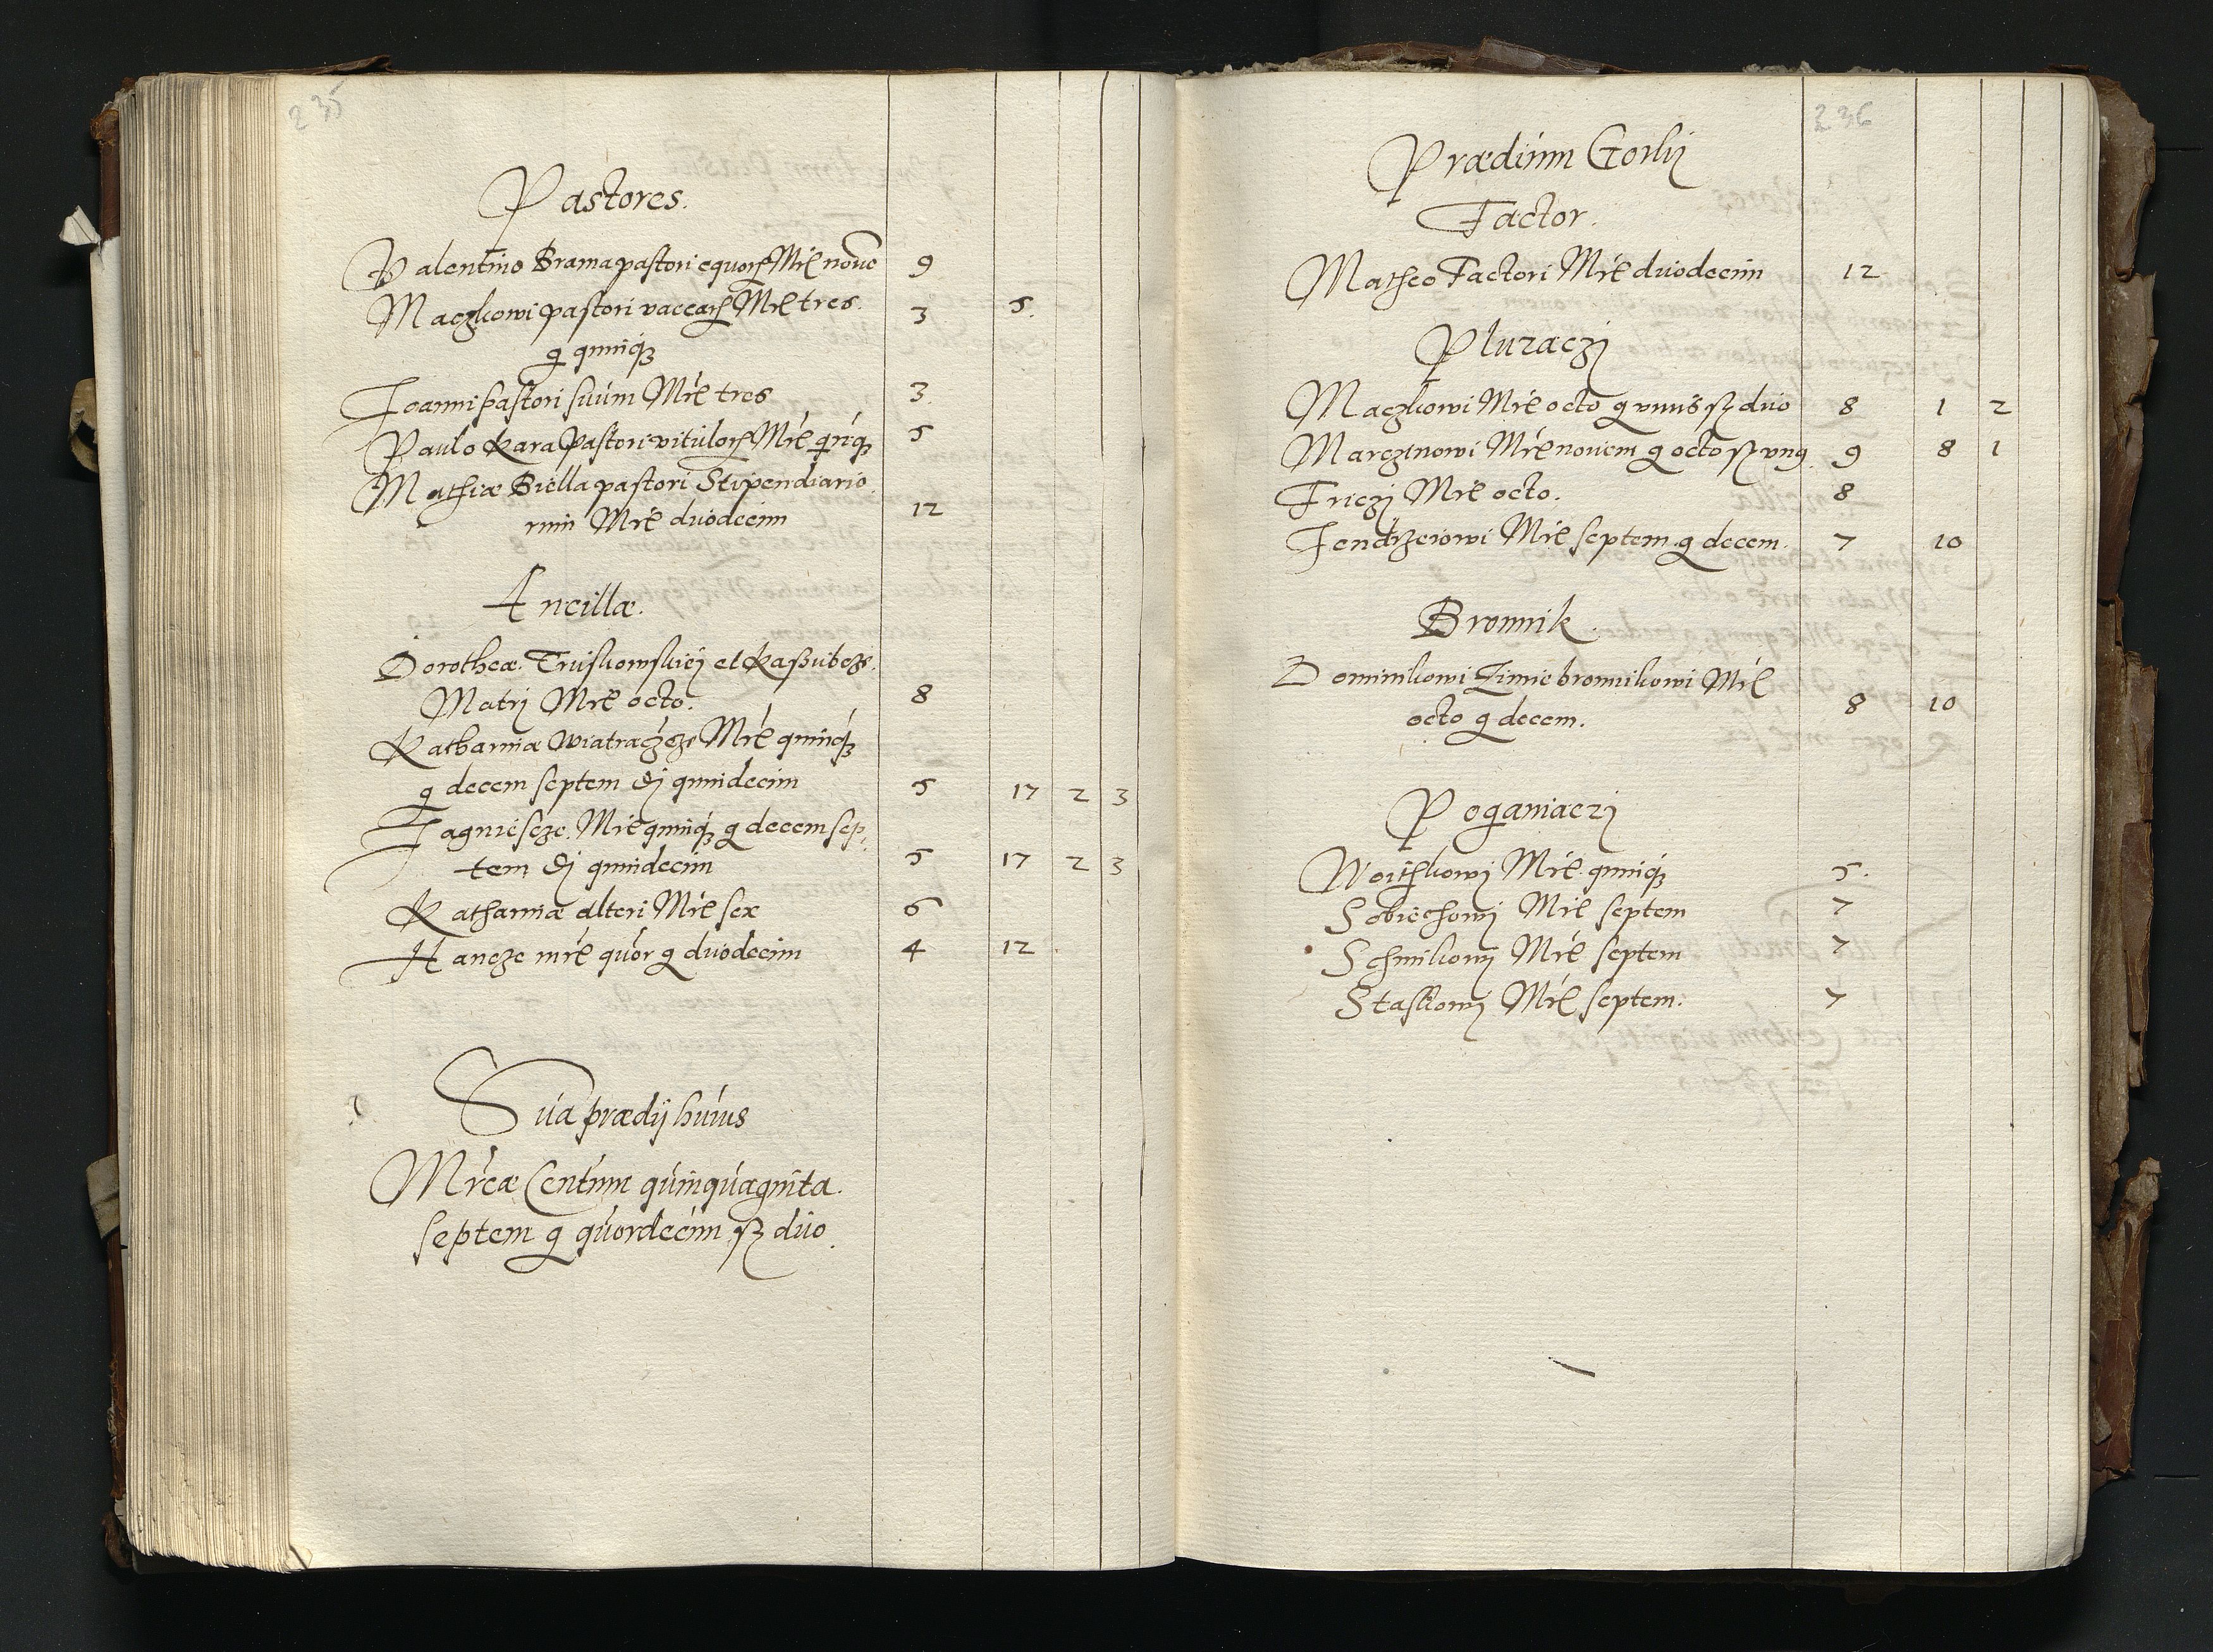 235
Pastores.
Valentino Brama pastori equorꝝ Mrć nouē 9
Maczkowi pastori vaccarꝝ Mrć tres. 3 5.
g quinqꝫ
Joanni pastori suum Mrć tres 3.
Paulo Kara Pastori vitulorꝝ Mrć qn̄qꝫ 5
Mathiæ Biella pastori Stipendiario
rum Mrć duodecim 12
Ancillæ.
Dorotheæ Truskowskiej et Kaßubcze.
Matrj Mrć octo. 8
Katharinæ Wiatraczcze Mrć quinqꝫ
g decem septem đj quindecim 5 17 2 3
Jagniescze. Mrć quinqꝫ g decem sep,
tem đj quindecim 5 17 2 3
Katharinæ alteri Mrć sex 6
Hancze mrć quor g duodecim 4 12
Sūa prædij huius
Mrcæ Centum quinquaginta
septem g quordecim ß duo.
236
Prædium Gorlij
Factor.
Matheo Factori Mrć duodecim 12
Pluzaczj
Maczkowi Mrć octo g vnus ß duo 8 1 2
Marczinowi Mrć nouem g octo ß vnꝰ. 9 8 1
Friczj Mrć octo. 8
Jendrzeiowi Mrć septem g decem. 7 10
Bronnik.
Dominikowi Zimie bronnikowi Mrć
octo g decem. 8 10
Poganiaczj
Woithkowj Mrć quinqꝫ 5.
Sobiechowj Mrć septem 7
Schmikowj Mrć septem 7
Staskowj Mrć septem. 7